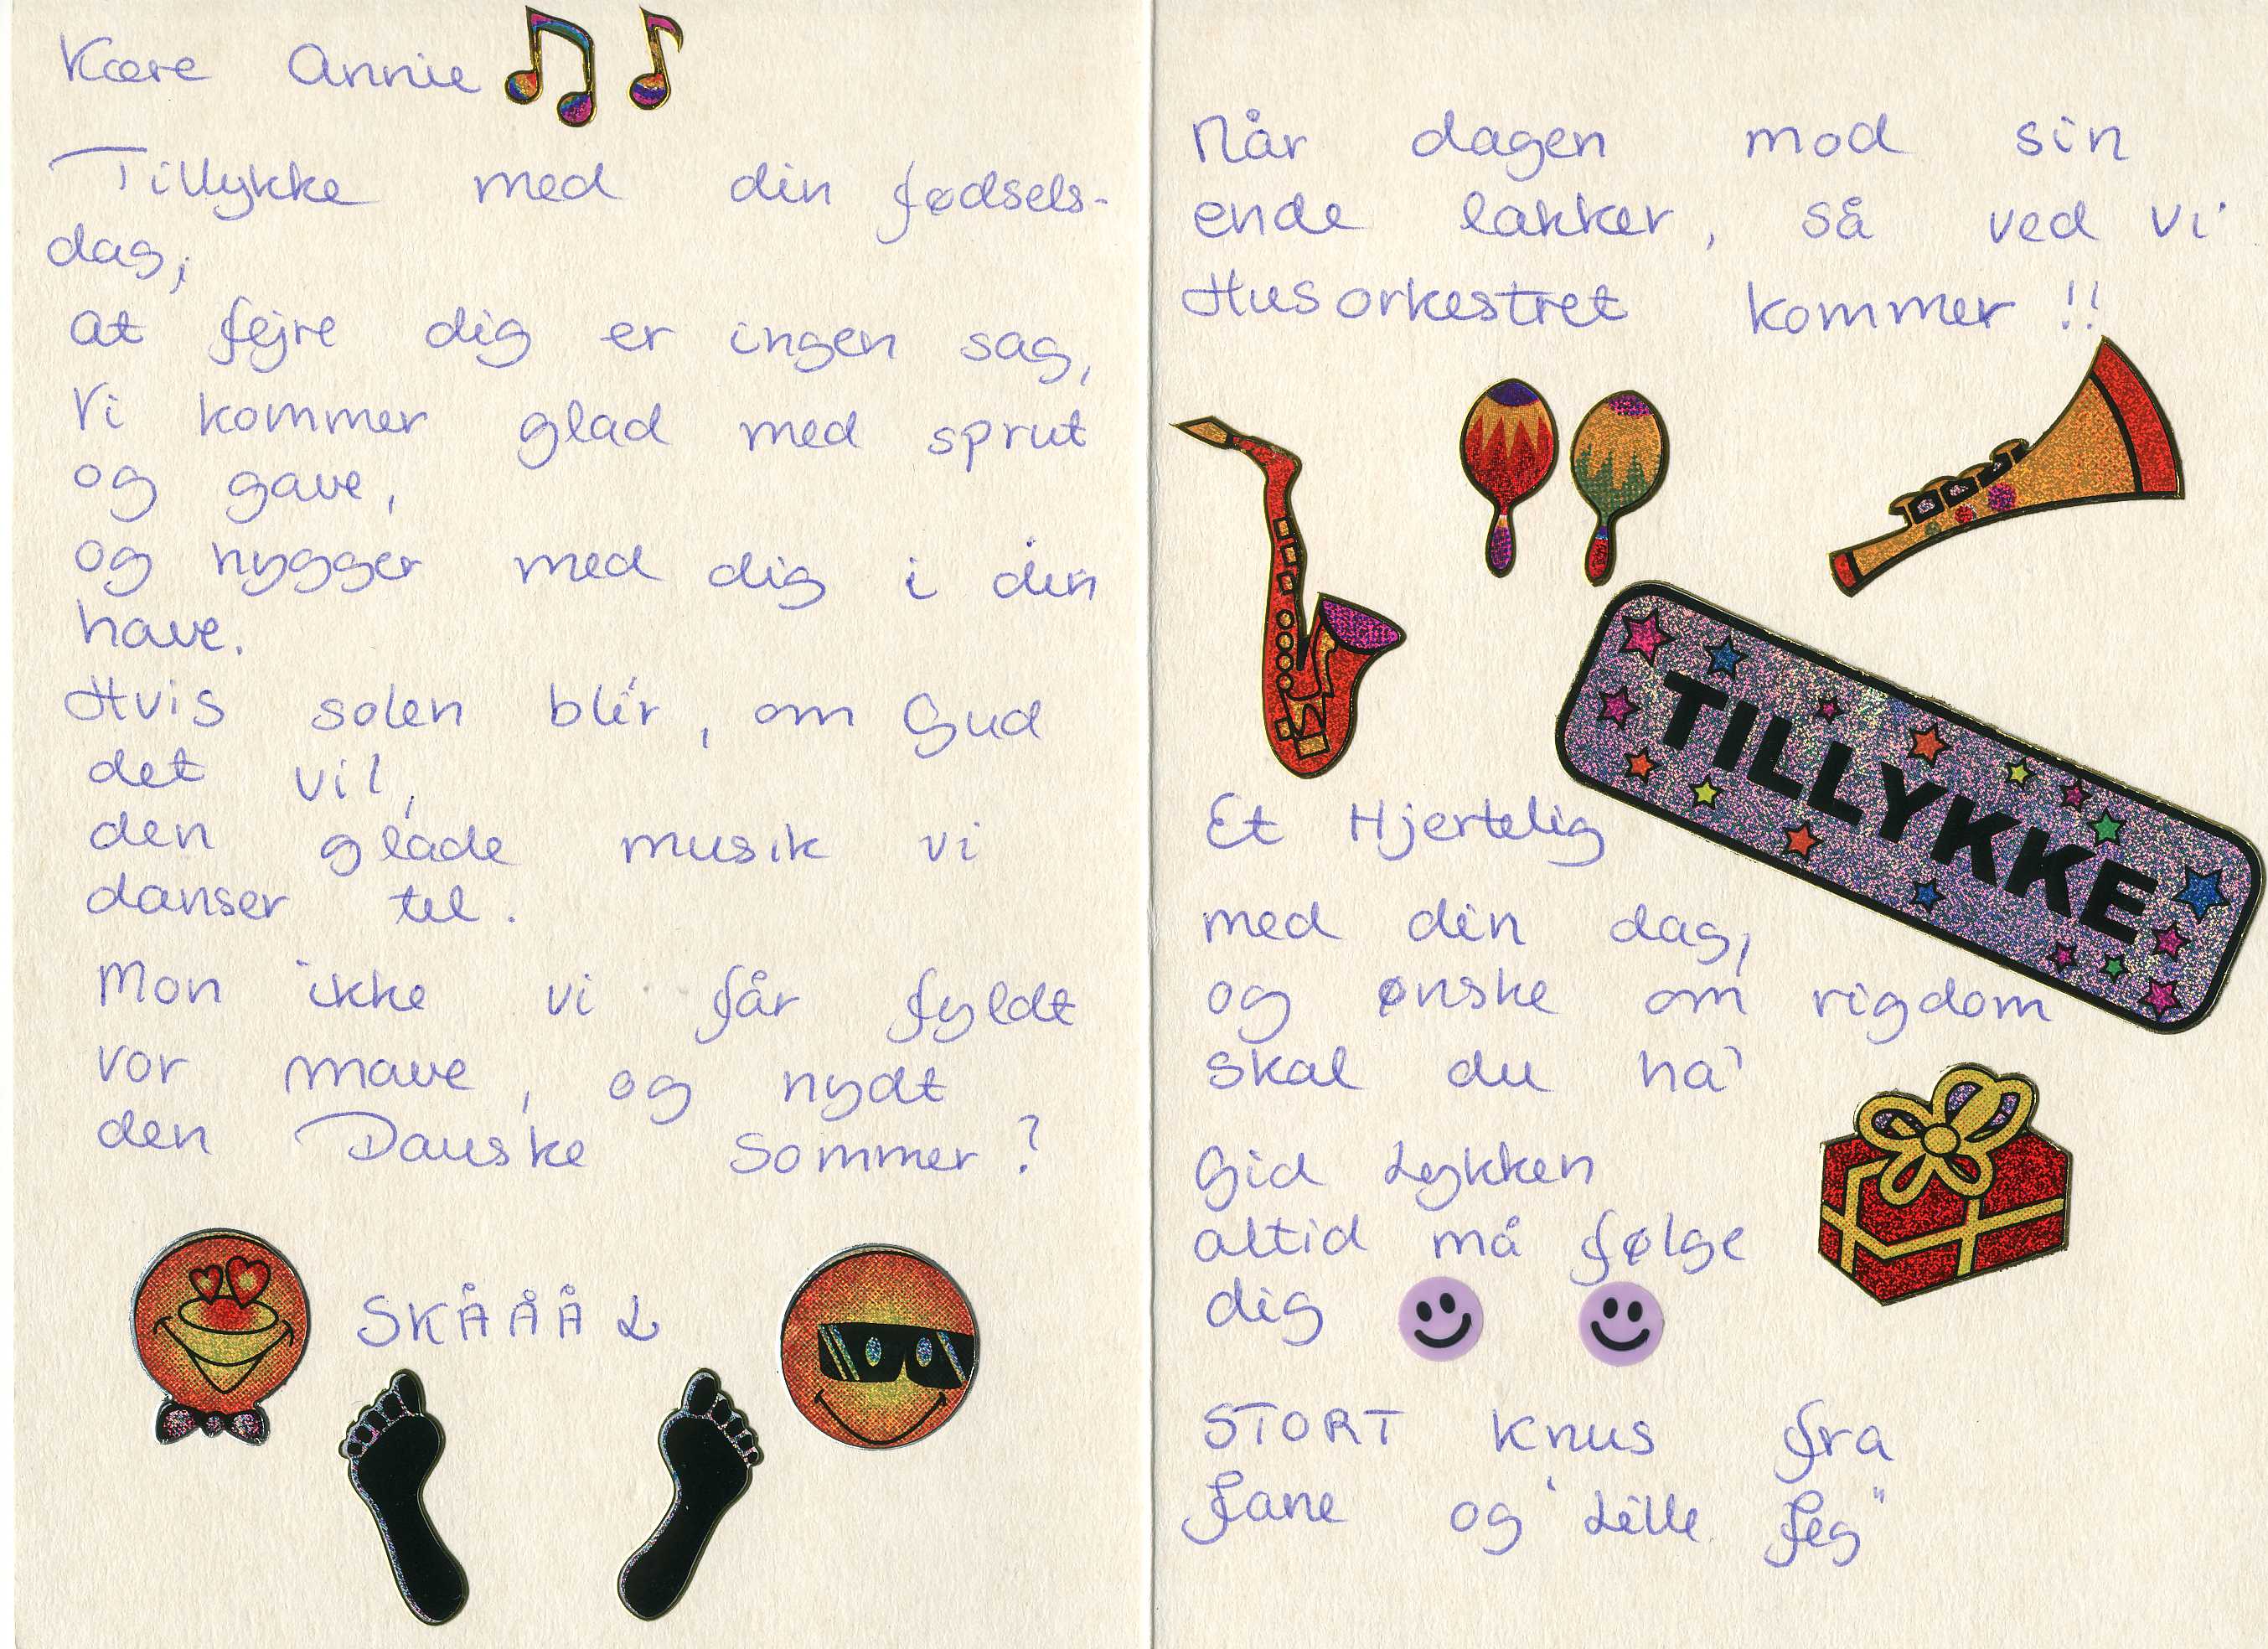 Kære Annie
Tillykke med din fødsels-
dag,
at fejre dig er ingen sag,
Vi kommer glad med sprut
og gave,
og hygger med dig i din
have.
Hvis solen bli'r, om Gud
det vil,
den glade musik vi
danser til.
Mon ikke vi får fyldt
vor mave, og nydt
den Danske Sommer?
SKÅÅÅL
Når dagen mod sin
ende lakker, så ved vi
Husorkestret kommer!!
TILLYKKE
Et Hjertelig
med din dag,
og ønske om rigdom
skal du ha'
Gid Lykken
altid må følge
dig
STORT Knus fra
Jane og "Lille Jeg"